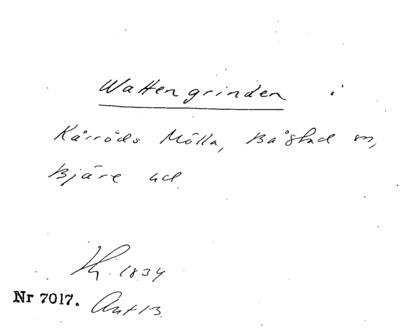 Wattengrinden i
Kårröds Mölla, Båstad sn,
Bjäre hd.
1834
Nr 7017.